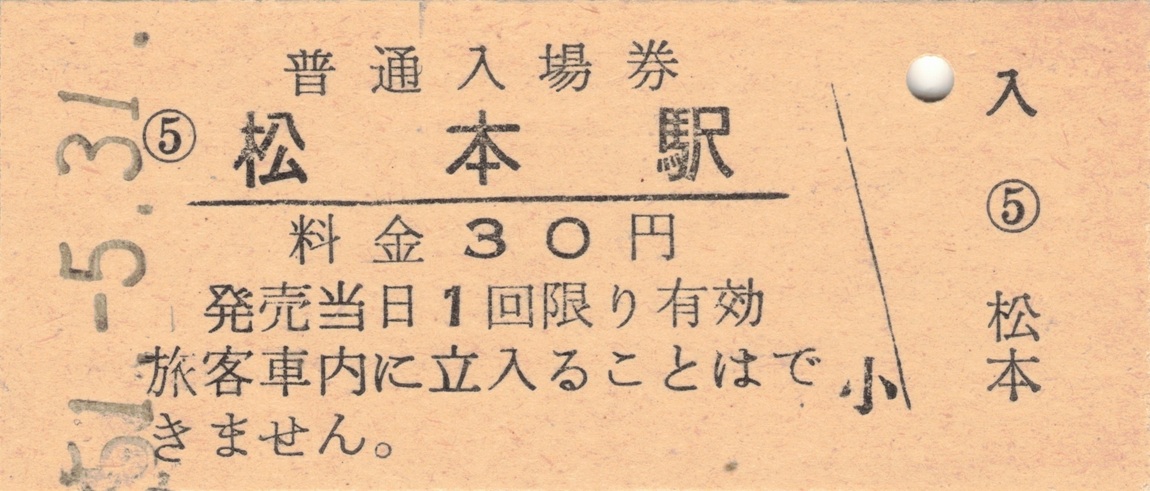 普通入場券
⑤ 松本駅
料金30円
発売当日1回限り有効
旅客車内に立入ることはで
きません。
小
入
⑤
松本
51.-5.31.